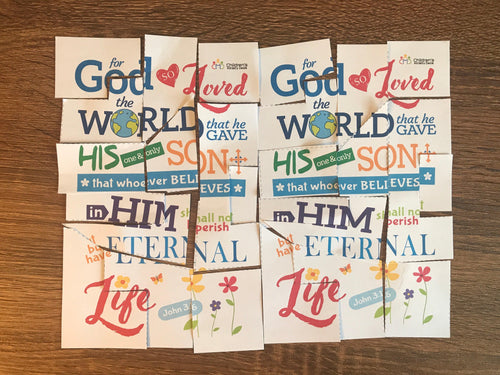 for
God so Loved
the
WORLD that he
GAVE
HIS one & only SON
that whoever BELIEVES
in HIM shall not
perish
but
have ETERNAL
Life
John 3:16
for
God so Loved
the
WORLD that he
GAVE
HIS one & only SON
that whoever BELIEVES
in HIM shall not
perish
but
have ETERNAL
Life
John 3:16